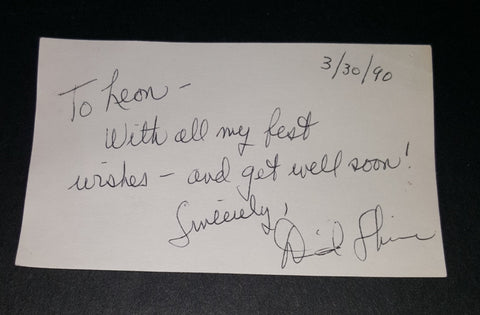 3/30/90
To Leon -
With all my best
wishes - and get well soon!
Sincerely,